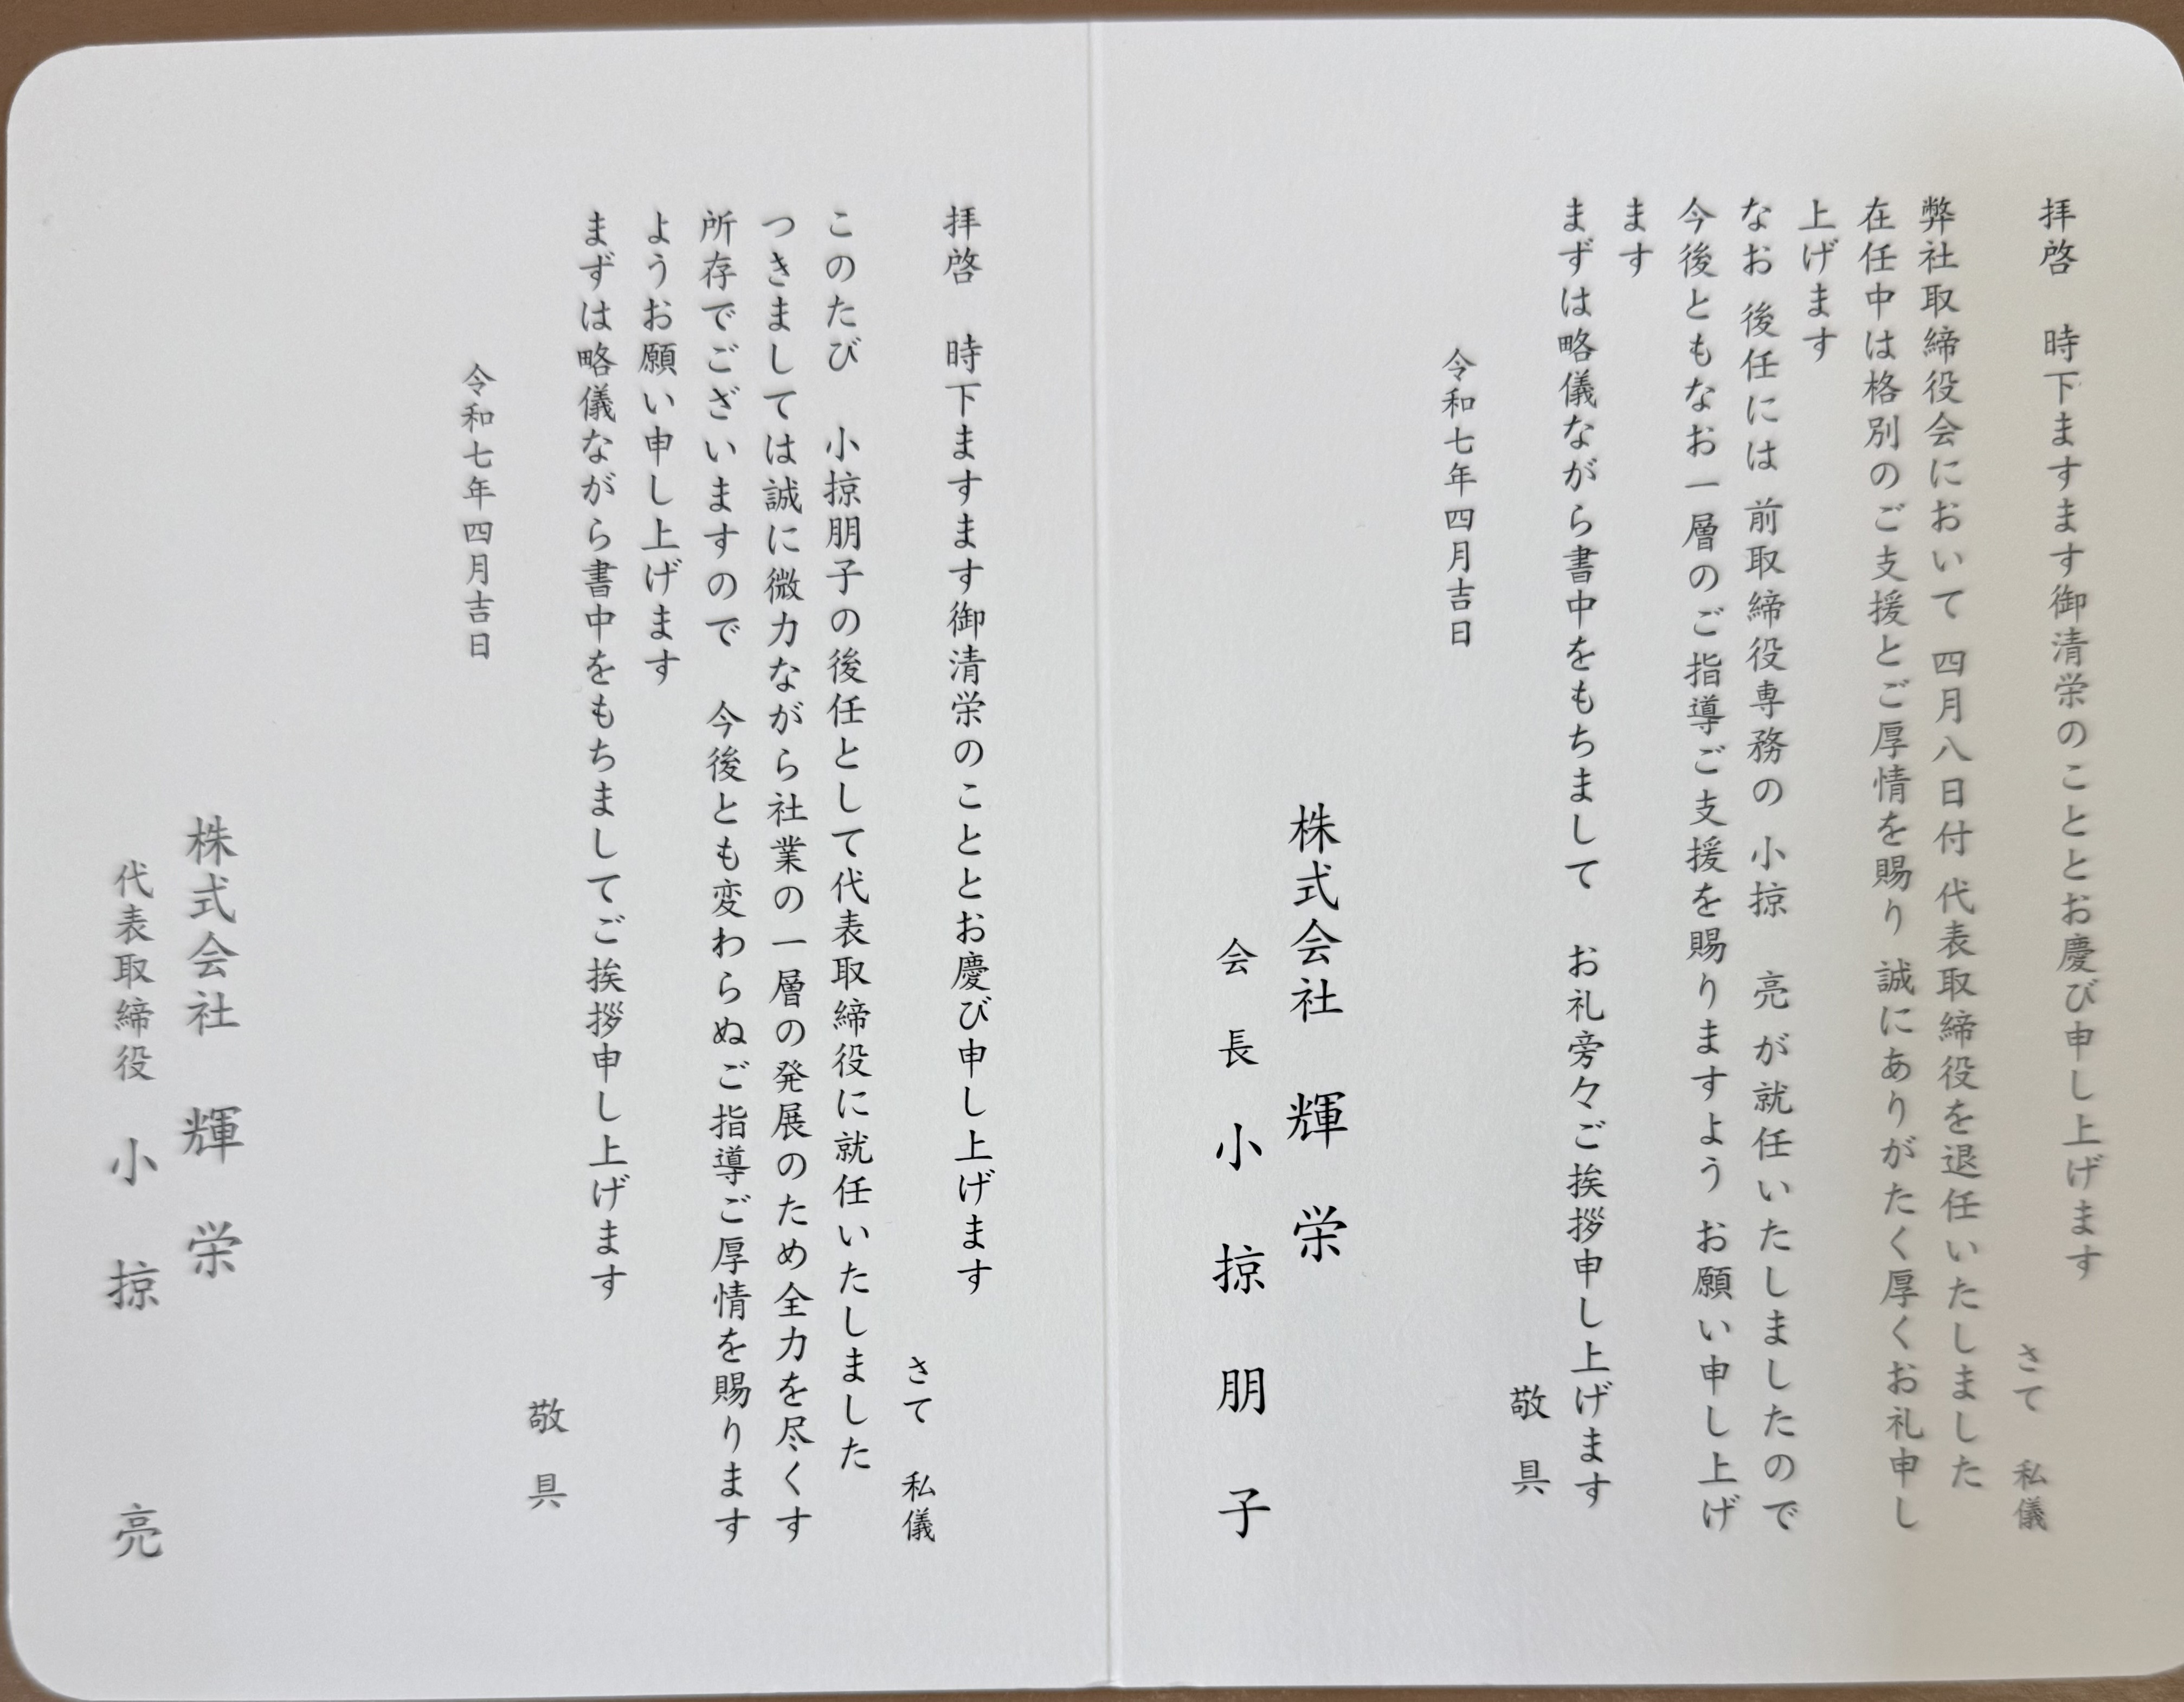 拝啓　時下ますます御清栄のこととお慶び申し上げます
さて　私儀
弊社取締役会において 四月八日付 代表取締役を退任いたしました
在任中は格別のご支援とご厚情を賜り 誠にありがたく厚くお礼申し
上げます
なお 後任には 前取締役専務の 小掠　亮 が就任いたしましたので
今後ともなお一層のご指導ご支援を賜りますよう お願い申し上げ
ます
まずは略儀ながら書中をもちまして　お礼旁々ご挨拶申し上げます
敬　具
令和七年四月吉日
株式会社　輝　栄
会　長　小　掠　朋　子
拝啓　時下ますます御清栄のこととお慶び申し上げます
さて　私儀
このたび　小掠朋子の後任として代表取締役に就任いたしました
つきましては誠に微力ながら社業の一層の発展のため全力を尽くす
所存でございますので　今後とも変わらぬご指導ご厚情を賜ります
ようお願い申し上げます
まずは略儀ながら書中をもちましてご挨拶申し上げます
敬　具
令和七年四月吉日
株式会社　輝　栄
代表取締役　小　掠　　亮